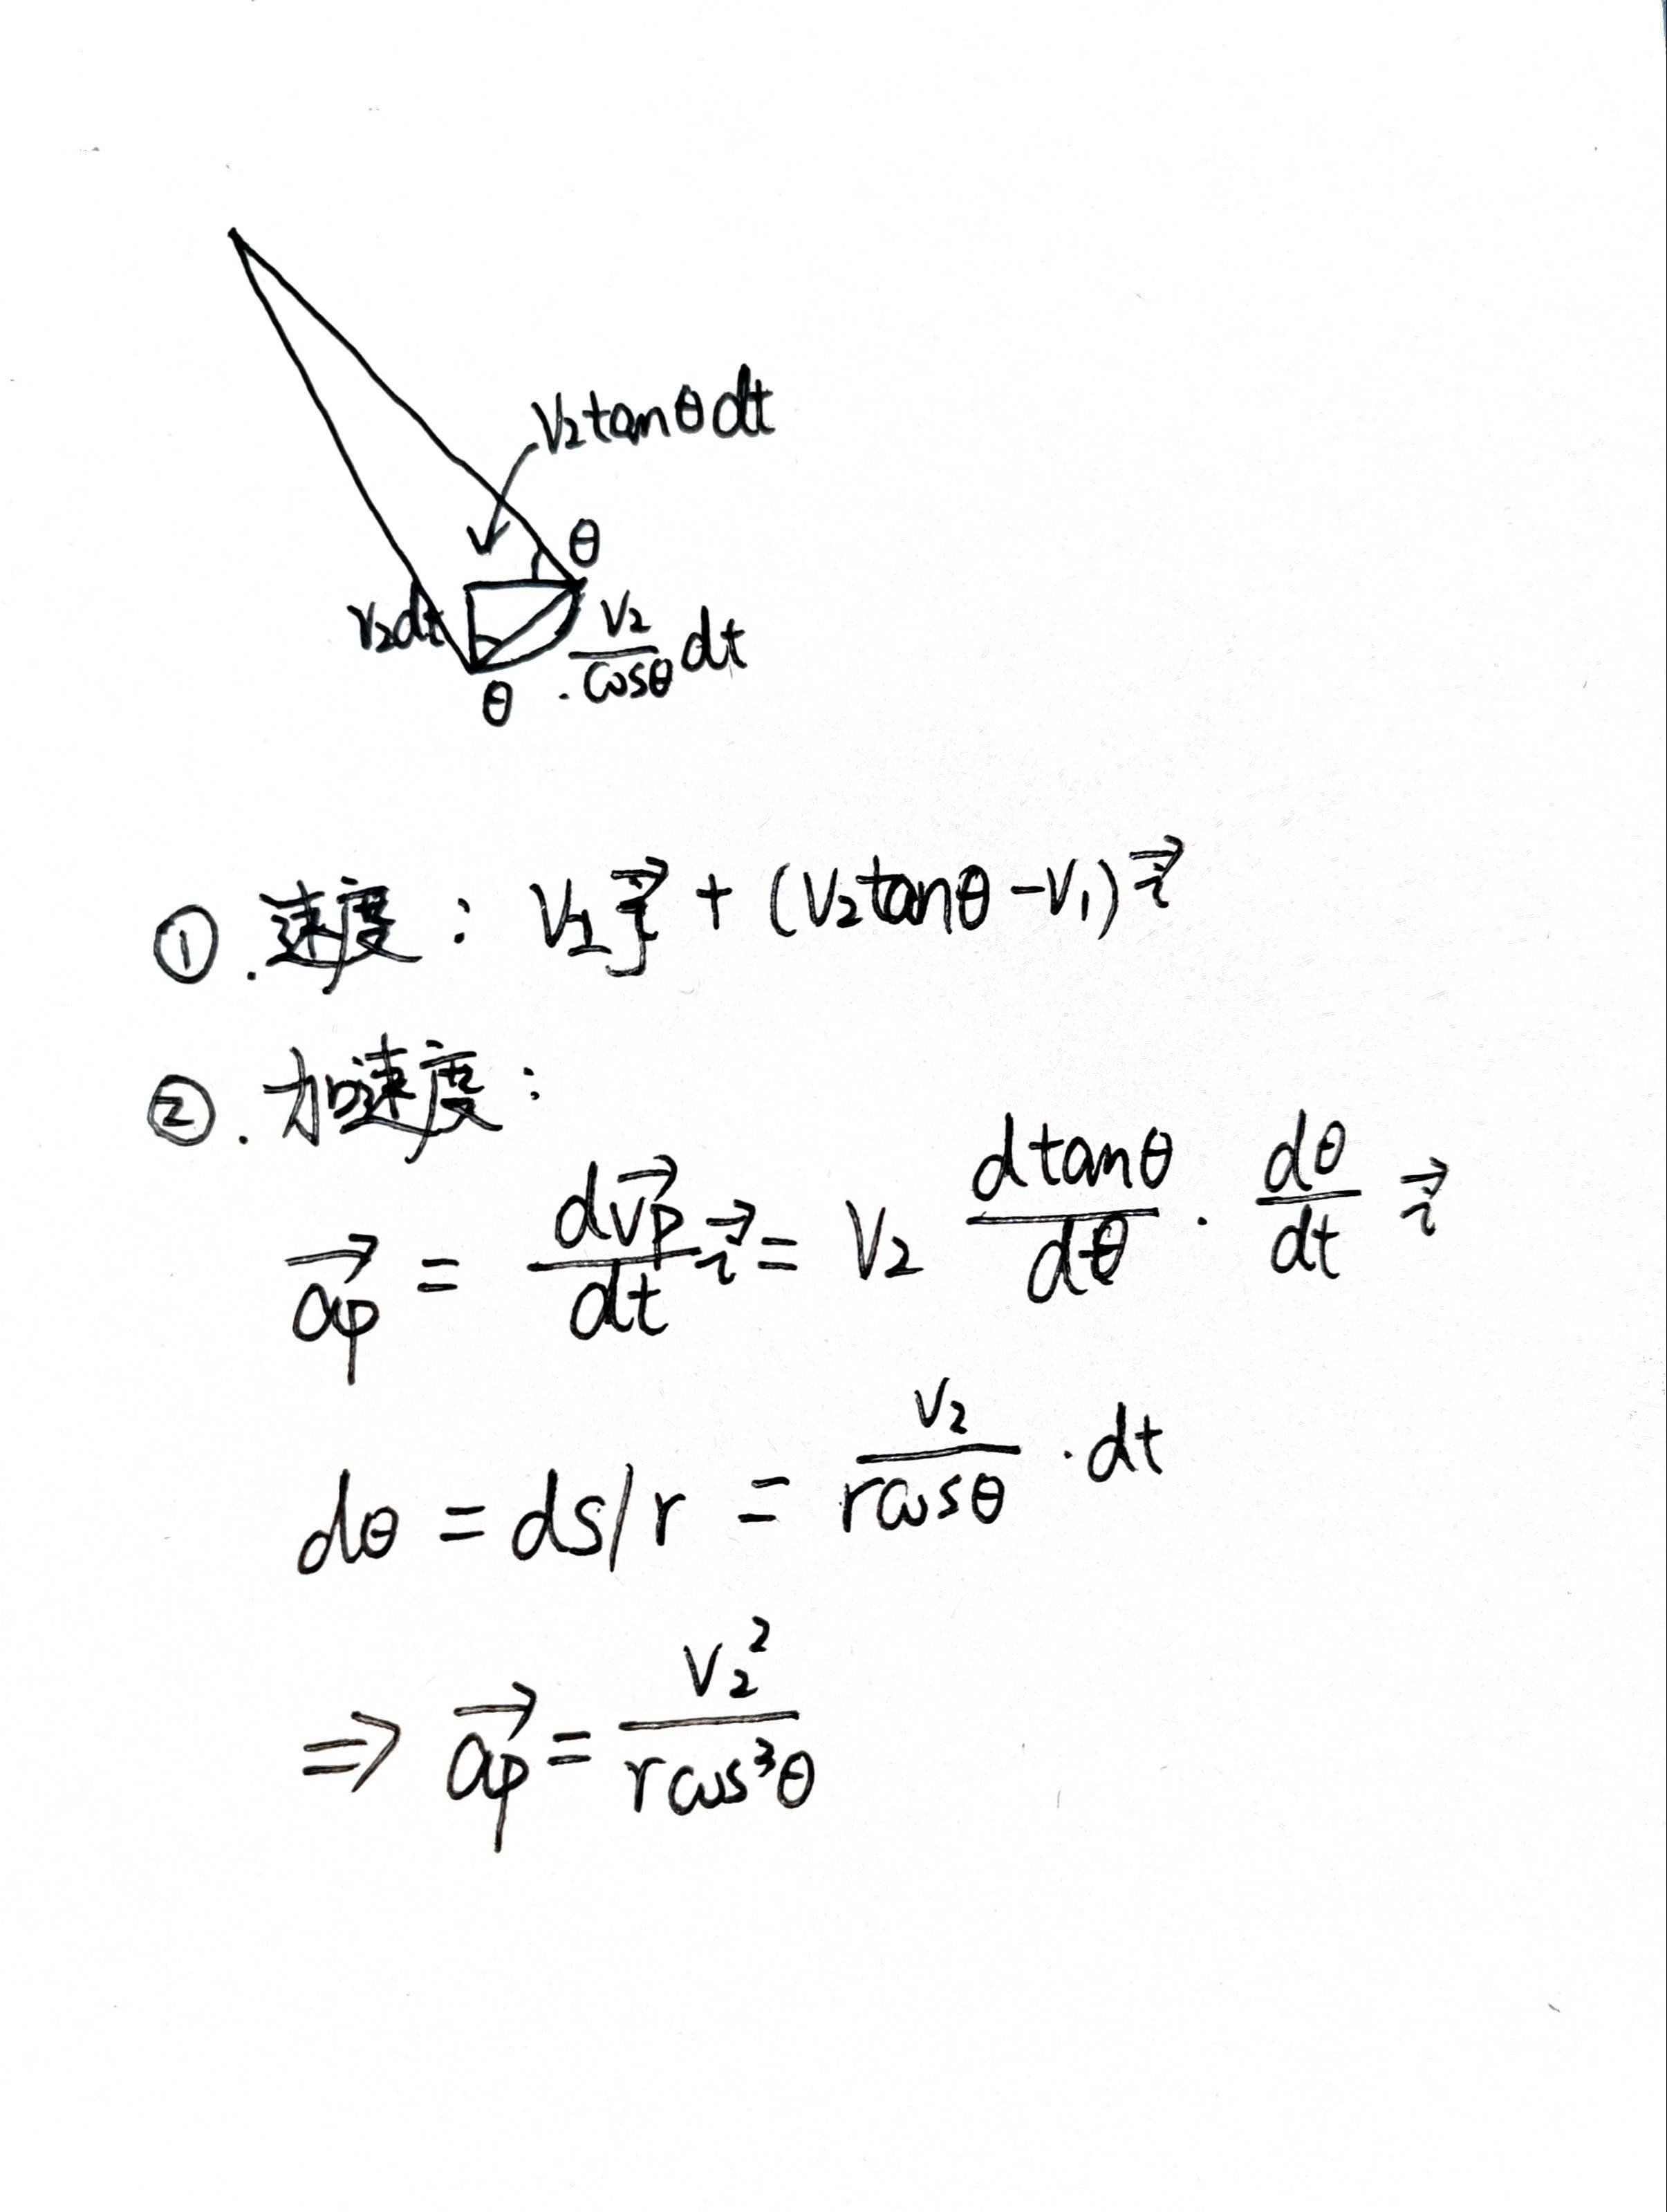 V₂tanθdt
θ
V₂dt
V₂/cosθ dt
θ
①.速度: V₂j⃗ + (V₂tanθ-V₁)i⃗
②.加速度:
a⃗p = dv⃗p/dt i⃗ = V₂ dtanθ/dθ · dθ/dt i⃗
dθ = ds/r = V₂/rcosθ · dt
⇒ a⃗p = V₂²/rcos³θ